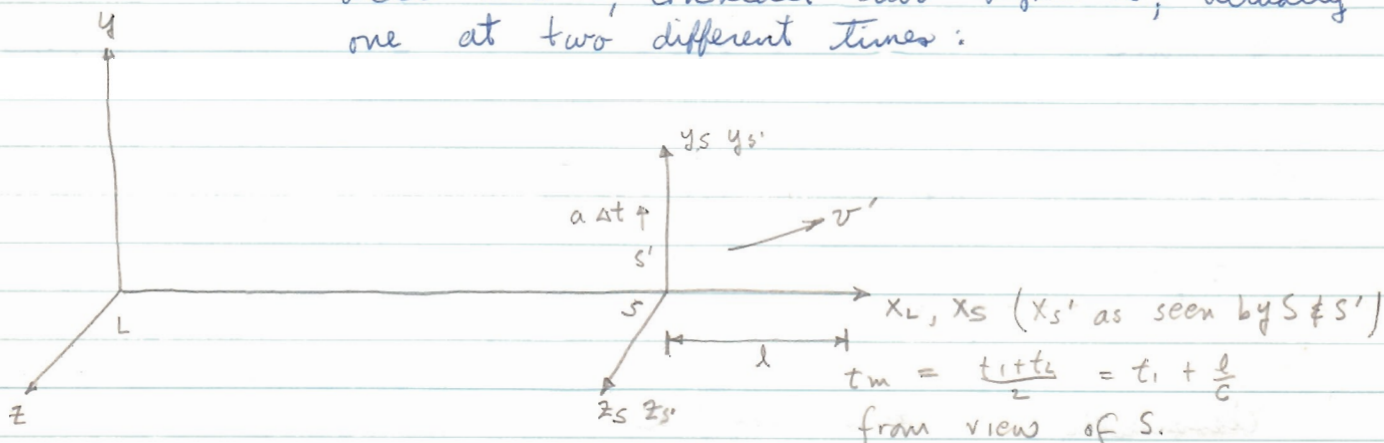 one at two different times:
y
ys ys'
a Δt ↑
v'
s'
L
S
xL, xS (xs' as seen by S & S')
l
tm = (t1+t2)/2 = t1 + l/c
z
zs zs'
from view of S.